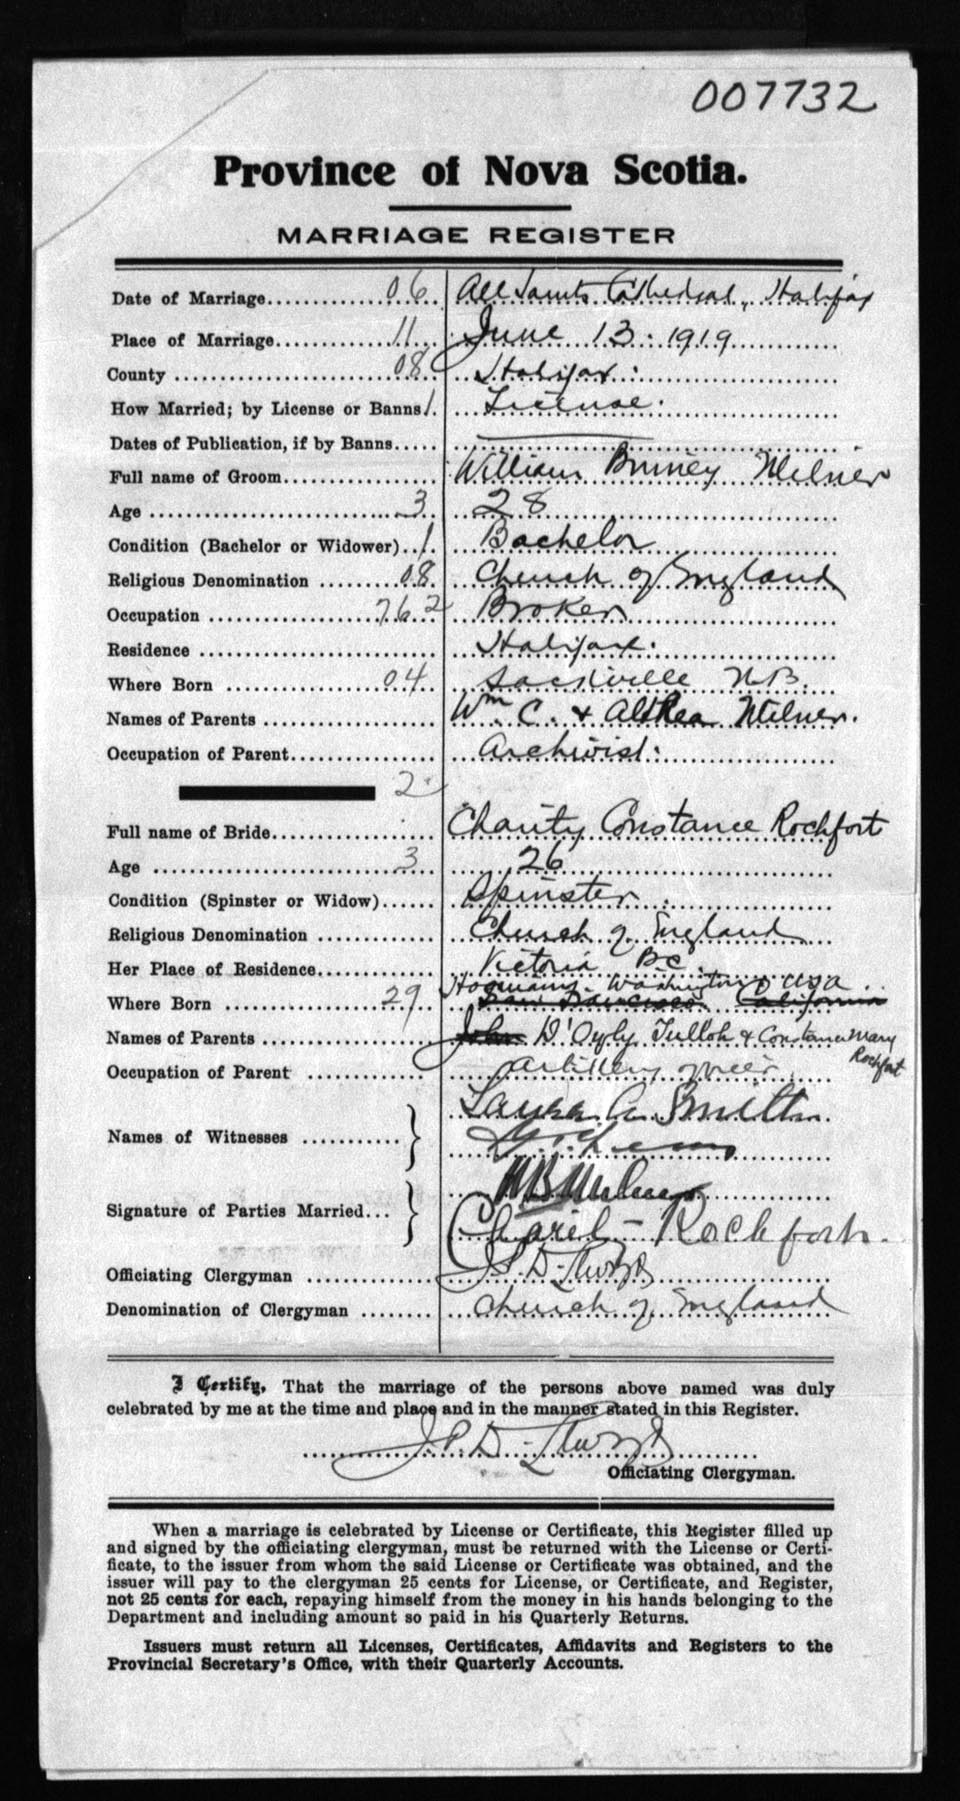 007732
Province of Nova Scotia.
MARRIAGE REGISTER
Date of Marriage 06 All Saints Cathedral, Halifax
Place of Marriage 11 June 13. 1919
County 08 Halifax.
How Married; by License or Banns 1 License.
Dates of Publication, if by Banns
Full name of Groom William Binney Milner
Age 3 28
Condition (Bachelor or Widower) 1 Bachelor
Religious Denomination 08 Church of England
Occupation 762 Broker
Residence Halifax.
Where Born 04 Sackville N.B.
Names of Parents Wm. C. & Althea Milner.
Occupation of Parent Archivist.
2
Full name of Bride Charity Constance Rochfort
Age 3 26
Condition (Spinster or Widow) Spinster
Religious Denomination Church of England
Her Place of Residence Victoria B.C.
Washington USA
Where Born 29 San Francisco California
Names of Parents John D'Oyly Tulloh & Constance Mary
Rochfort
Occupation of Parent Artillery officer
Laura A. Smith
Names of Witnesses
Signature of Parties Married
Rochfort.
Officiating Clergyman J.P.D.
Denomination of Clergyman Church of England
I Certify, That the marriage of the persons above named was duly
celebrated by me at the time and place and in the manner stated in this Register.
J.P.D.
Officiating Clergyman.
When a marriage is celebrated by License or Certificate, this Register filled up
and signed by the officiating clergyman, must be returned with the License or Certi-
ficate, to the issuer from whom the said License or Certificate was obtained, and the
issuer will pay to the clergyman 25 cents for License, or Certificate, and Register,
not 25 cents for each, repaying himself from the money in his hands belonging to the
Department and including amount so paid in his Quarterly Returns.
Issuers must return all Licenses, Certificates, Affidavits and Registers to the
Provincial Secretary's Office, with their Quarterly Accounts.